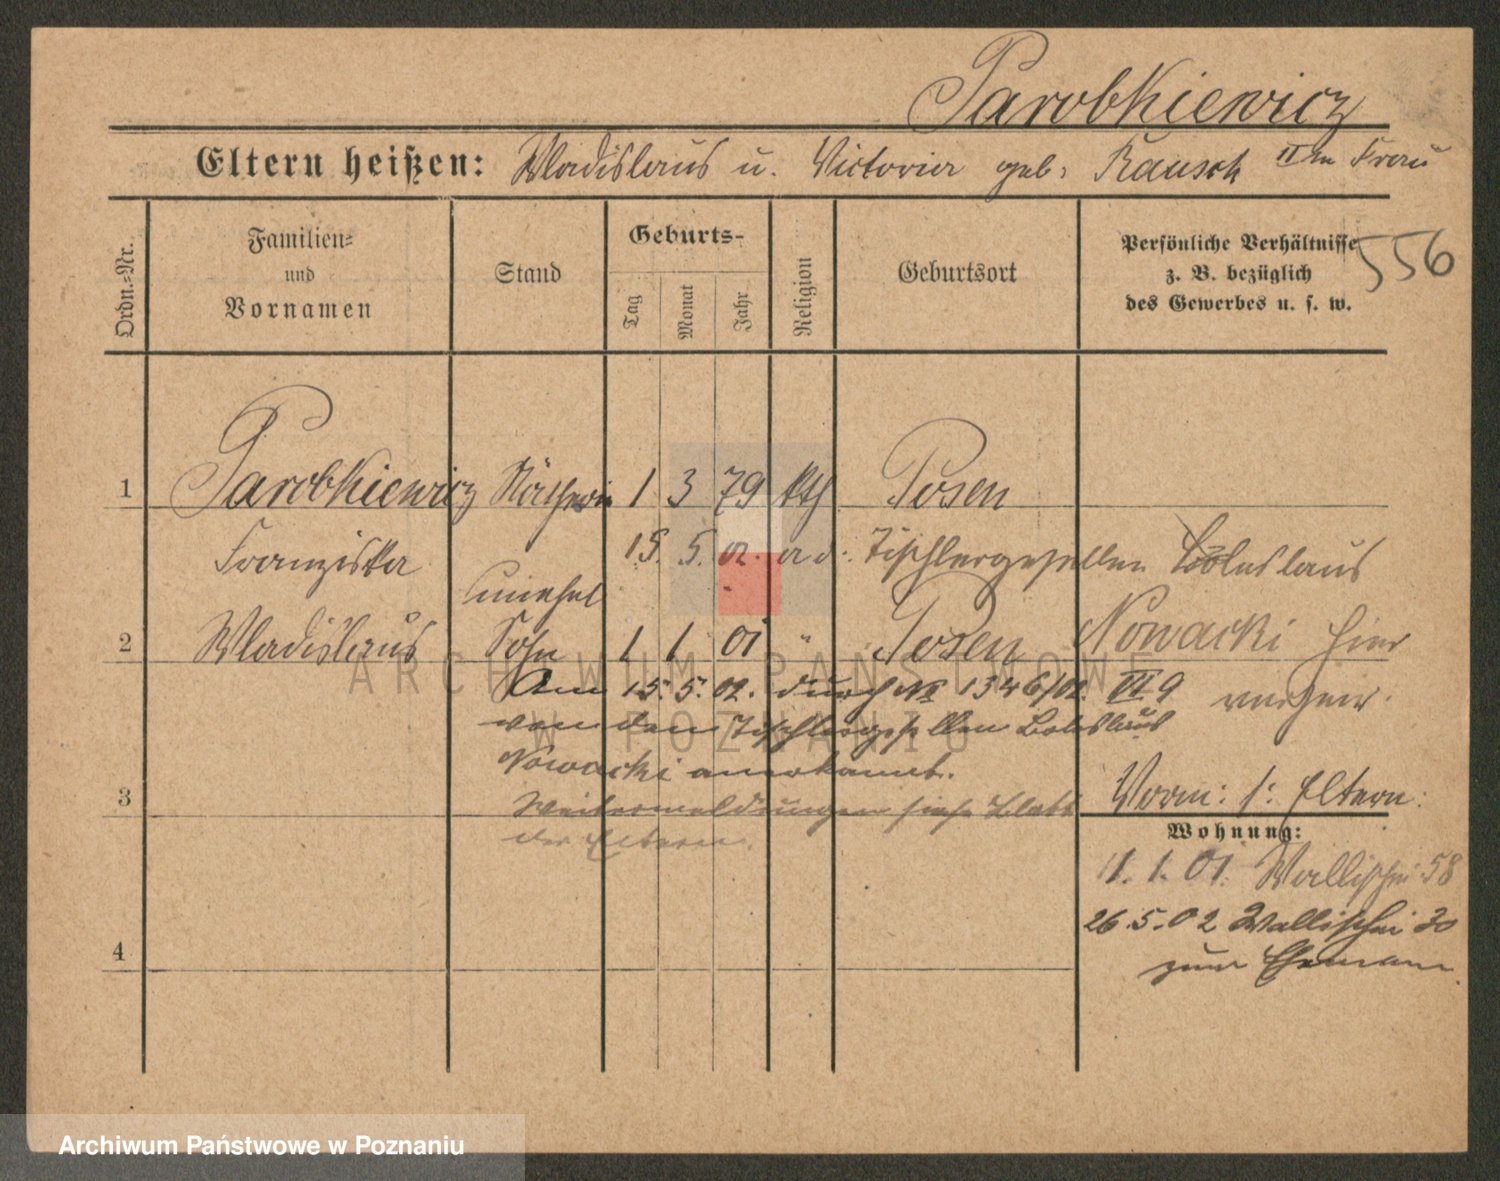 Parobkiewicz
Eltern heißen: Wladislaus u. Victoria geb. Rausch II te Frau
Ordn.-Nr.
Familien-
und
Vornamen
Stand
Geburts-
Tag
Monat
Jahr
Religion
Geburtsort
Persönliche Verhältnisse
z. B. bezüglich
des Gewerbes u. s. w.
556
1 Parobkiewicz Nätherin 1 3 79 kth Posen
Franziska 15. 5. 02. a d. Tischlergesellen Boleslaus
unehel
2 Wladislaus Sohn 1 1 01 " Posen Nowacki hier
Am 15. 5. 02. durch № 1346/02. VI 9 verheir.
von dem Tischlergesellen Boleslaus
Nowacki anerkannt.
3 Weitermeldungen siehe Blatt
der Eltern.
Vorm: s: Eltern:
Wohnung:
11. 1. 01. Wallischei 58
26. 5. 02 Wallischei 30
zum Ehemann.
4
ARCHIWUM PAŃSTWOWE
W POZNANIU
Archiwum Państwowe w Poznaniu